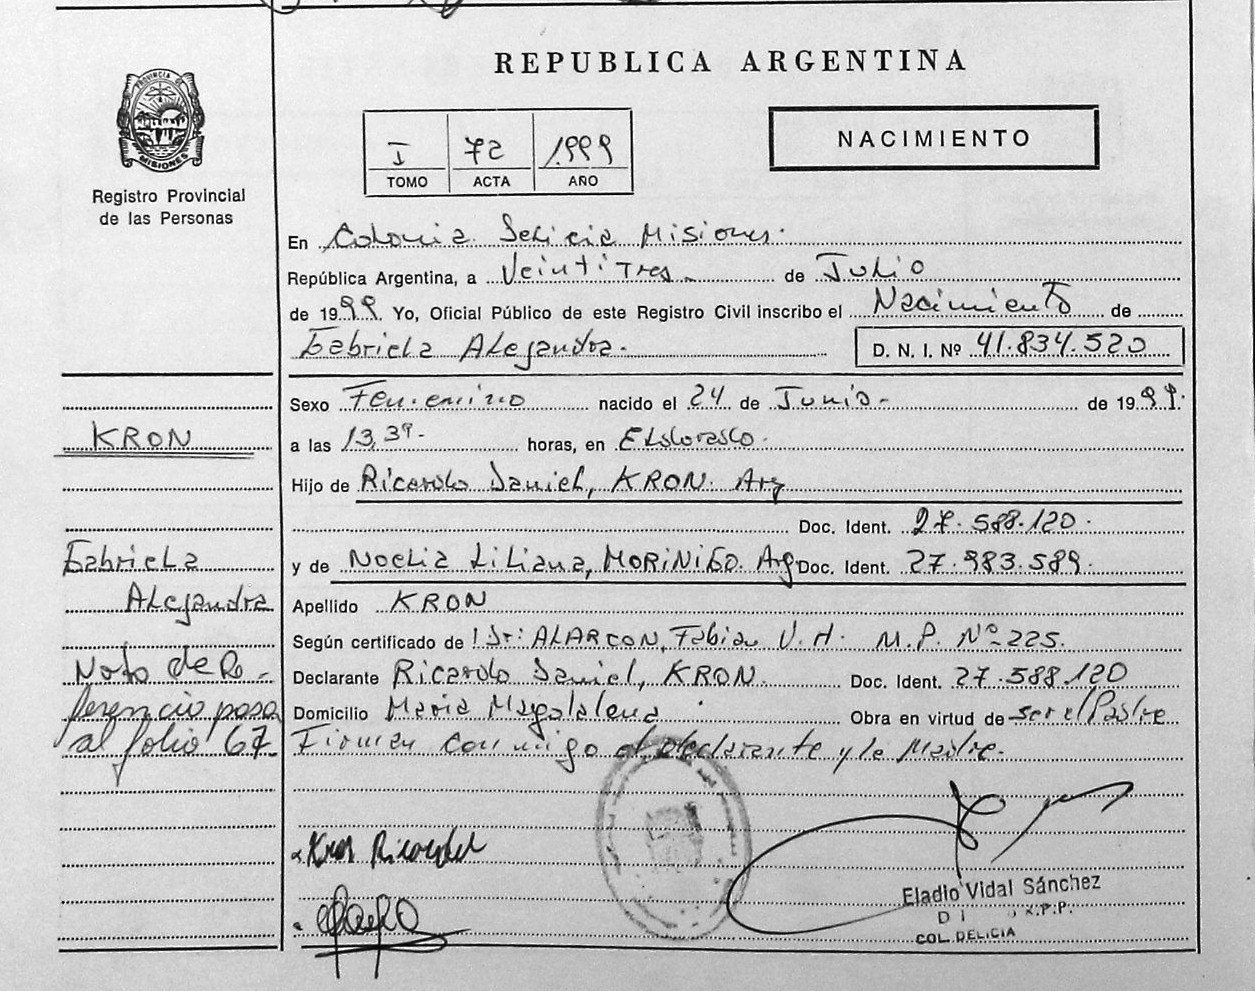 REPUBLICA ARGENTINA
PROVINCIA DE MISIONES
Registro Provincial
de las Personas
I 72 1999
TOMO ACTA AÑO
NACIMIENTO
En Colonia Delicia Misiones.
República Argentina, a Veintitres de Julio
de 1999 Yo, Oficial Público de este Registro Civil inscribo el Nacimiento de
Gabriela Alejandra. D. N. I. Nº 41.834.520
Sexo Femenino nacido el 24 de Junio de 1999.
a las 13,39 horas, en Eldorado.
Hijo de Ricardo Daniel, KRON. Arg
Doc. Ident. 27.588.120.
y de Noelia Liliana, MORINIGO. Arg Doc. Ident. 27.983.589.
Apellido KRON
Según certificado de Dr: ALARCON, Fabian V. H. M.P. Nº 225.
Declarante Ricardo Daniel, KRON. Doc. Ident. 27.588.120
Domicilio Maria Magdalena Obra en virtud de ser el Padre
Firman conmigo el declarante y la Madre.
KRON
Gabriela
Alejandra
Nota de Re-
ferencia pasa
al folio 67.
Kron Ricardo
Eladio Vidal Sánchez
COL. DELICIA